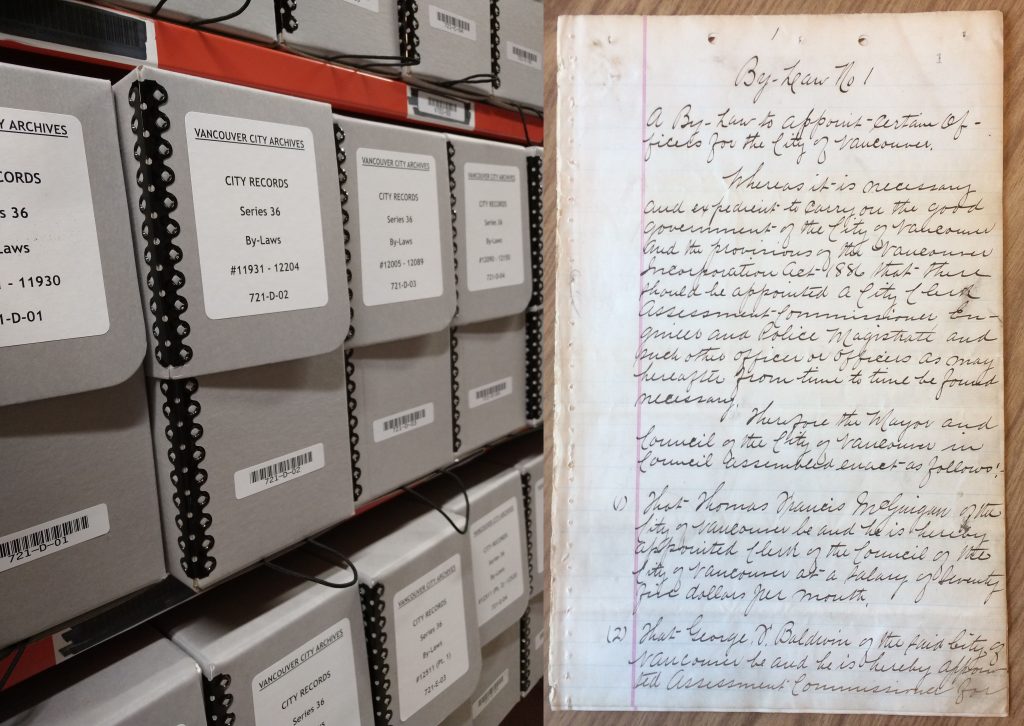 Y ARCHIVES
CORDS
s 36
Laws
- 11930
1-D-01
721-D-01
VANCOUVER CITY ARCHIVES
CITY RECORDS
Series 36
By-Laws
#11931 - 12204
721-D-02
721-D-02
VANCOUVER CITY ARCHIVES
CITY RECORDS
Series 36
By-Laws
#12005 - 12089
721-D-03
721-D-03
VANCOUVER CITY ARCHIVES
CITY RECORDS
Series 36
By-Laws
#12090 - 12150
721-D-04
VANCOUVER CITY ARCHIVES
CITY RECORDS
Series 36
VANCOUVER CITY ARCHIVES
CITY RECORDS
Series 36
By-Laws
#12511 (Pt. 1)
721-E-03
VANCOUVER CITY ARCHIVES
CITY RECORDS
Series 36
By-Laws
1
1
By-Law No 1
A By-Law to appoint certain Of-
ficers for the City of Vancouver.
Whereas it is necessary
and expedient to carry on the good
government of the City of Vancouver
and the provisions of the Vancouver
Incorporation Act 1886 that there
should be appointed a City Clerk
Assessment Commissioner En-
gineer and Police Magistrate and
such other officer or officers as may
hereafter from time to time be found
necessary.
Therefore the Mayor and
Council of the City of Vancouver in
Council Assembled enact as follows:-
(1) That Thomas Francis McGuigan of the
City of Vancouver be and he is hereby
appointed Clerk of the Council of the
City of Vancouver at a salary of Seventy
five dollars per month.
(2) That George V. Baldwin of the said City of
Vancouver be and he is hereby appoin-
ted Assessment Commissioner for